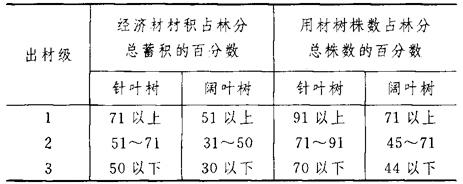 出材级 经济材材积占林分总蓄积的百分数 用材树株数占林分总株数的百分数
针叶树 阔叶树 针叶树 阔叶树
1 71以上 51以上 91以上 71以上
2 51～71 31～50 71～91 45～71
3 50以下 30以下 70以下 44以下